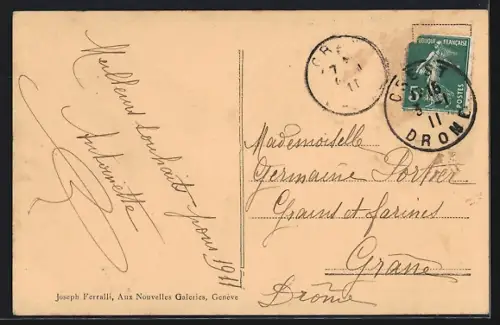 Meilleurs souhaits pour 1911
Antoinette
Joseph Ferralli, Aux Nouvelles Galeries, Genève
CRE
7
11
CREST
DROME
11
FRANÇAISE
5
POSTES
Mademoiselle
Germaine Portier
Grains et farines
Grâne
Drôme